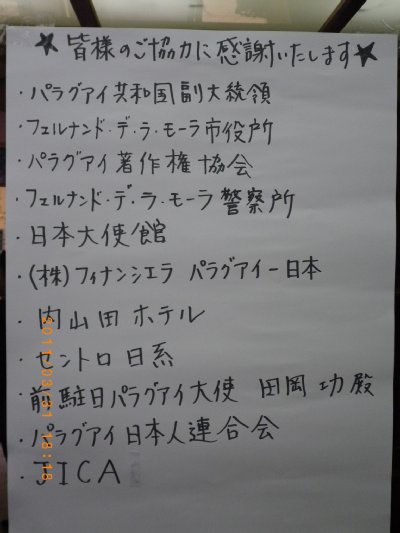 ★皆様のご協力に感謝いたします★
・パラグアイ共和国副大統領
・フェルナンド・デ・ラ・モーラ市役所
・パラグアイ著作権協会
・フェルナンド・デ・ラ・モーラ警察所
・日本大使館
・(株)フィナンシエラ パラグアイー日本
・内山田ホテル
・セントロ日系
・前駐日パラグアイ大使 田岡 功殿
・パラグアイ日本人連合会
・JICA